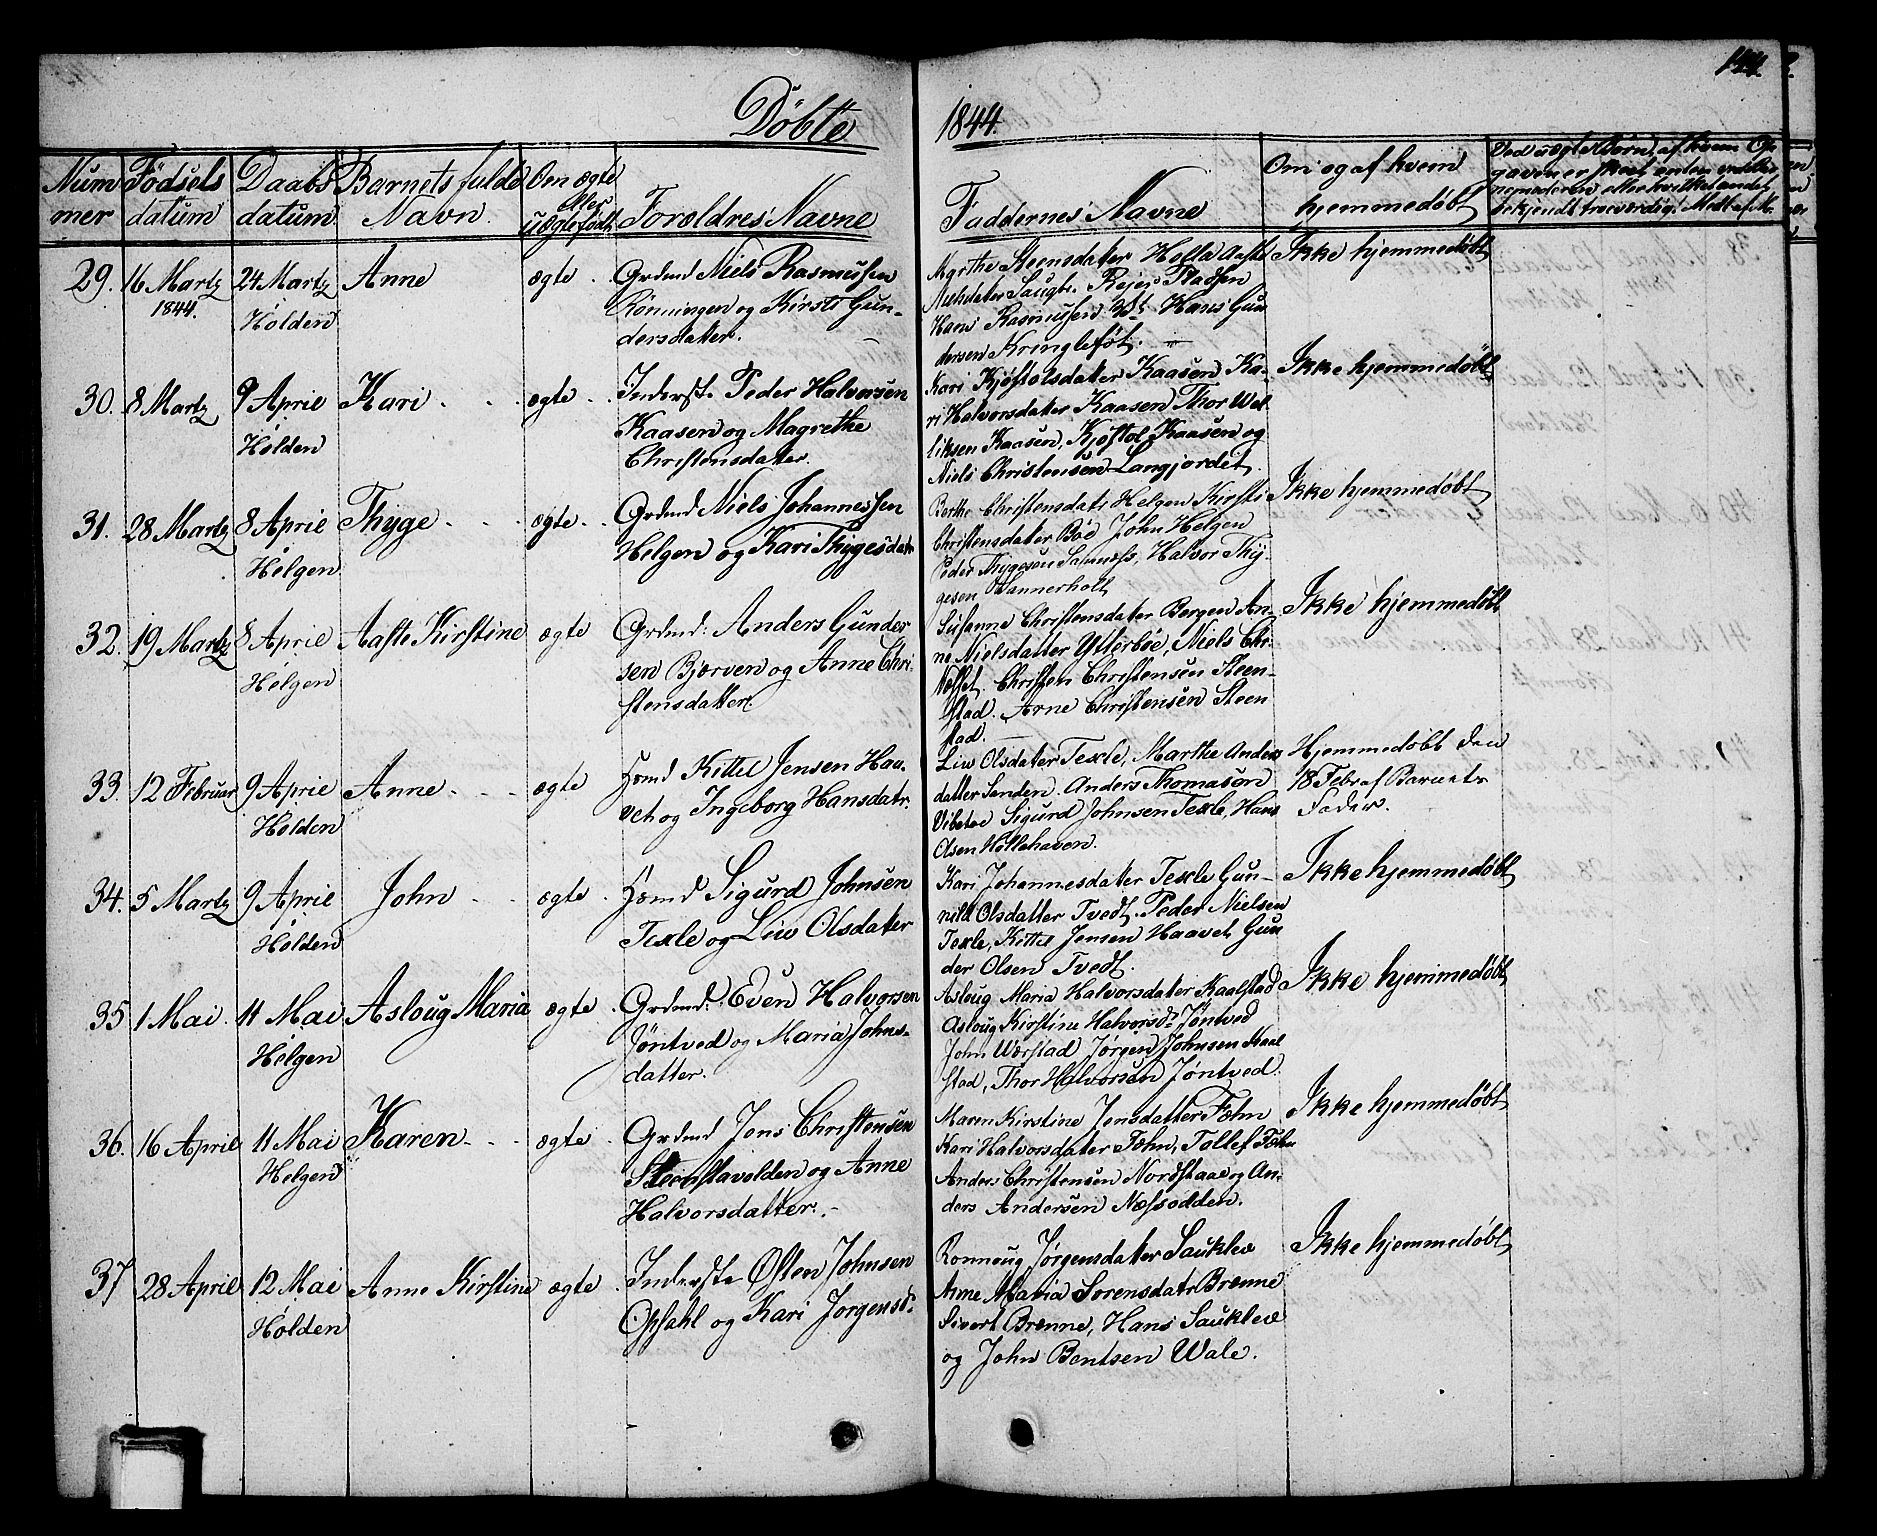 Döbte 1844.
144.
Nummer
Födsels datum
Daabs datum
Barnets fulde Navn.
Om ægte eller uægteföd
Foroldres Navne
Faddernes Navne
Om og af hvem hjemmedøbt
29. 16 Martz 1844. 24 Martz Holden Anne ægte.
Grdmd Niels Rasmussen
Rönningen og Kirsti Gun-
dersdatter.
Myrthe Steensdater Holla Aaste
Hans Rasmussen Hans Gun
dersen Kringlefót.
Ikke hjemmedøbt
30. 8 Martz 9 April Holden Kari ægte
Inderst. Peder Halvorsen
Kaasen og Magrethe
Christensdatter.
Kari Kjøstolsdatter Kaasen Ka-
ri Halvorsdater Kaasen Thor Wel
liksen Kaasen, Kjøstol Kaasen og
Niels Christensen Langjordet.
Ikke hjemmedøbt
31. 28 Martz 8 April Helgen Thyge ægte
Grdmd Niels Johannessen
Helgen og Kari Thygesdatr
Berthe Christensdatr Helgen Kirsti
Christensdater Böe John Helgen
Peder Thygesen Halvor Thy-
gesen Wannerholt
Ikke hjemmedøbt
32. 19 Martz 8 April Helgen Aaste Kirstine ægte
Grdmd: Anders Gunder
sen Bjerven og Anne Chri-
stensdatter.
Susanne Christensdater Bergen An-
ne Nielsdatter Ytterböe, Niels Chr.
Christen Christensen Steen-
stad. Arne Christensen Steen
stad.
Ikke hjemmedøbt
33. 12 Februar 9 April Holden Anne ægte
Hsmd Kittel Jensen Haa-
vet og Ingeborg Hansdatr.
Liw Olsdater Texle, Marthe Anders
datter Sanden. Anders Thomasøn
Vibetoe Sigurd Johnsen Texle, Hans
Olsen Hollahaven.
Hjemmedøbt den
18 Febr af Barnets
Fader.
34. 5 Martz 9 April Holden John ægte
Hsmd Sigurd Johnsen
Texle og Liw Olsdater
Kari Johannesdater Texle Gun-
nild Olsdatter Tvedt. Peder Nielsen
Texle, Kittil Jensen Haavet Gun
der Olsen Tvedt.
Ikke hjemmedøbt
35 1 Mai. 11 Mai Helgen Asloug Maria ægte
Grdmd: Even Halvorsen
Jöntved og Maria Johns-
datter.
Asloug Maria Halvorsdater Kaalstad
Asloug Kirstine Halvorsdr Jöntved
John Wærstad Jørgen Johnsen Kaal
stad, Thor Halvorsen Jöntved.
Ikke hjemmedøbt
36. 16 April 11 Mai Helgen Karen ægte
Grdmd Jens Christensen
Steenstavolden og Anne
Halvorsdatter.
Maren Kirstine Jensdatter Fæhn
Kari Halvorsdater Fæhn, Tollef Fæhn
Anders Christensen Nordstaae og An-
ders Andersen Næssodden.
Ikke hjemmedøbt
37 28 April 12 Mai Holden Anne Kirstine ægte
Inderste Östen Johnsen
Opsahl og Kari Jorgensd.
Ronnoug Jørgensdater Sauklev
Anne Maria Sorensdatr Brenne
Sivert Brenne, Hans Sauklev
og John Bentsen Wale.
Ikke hjemmedøbt